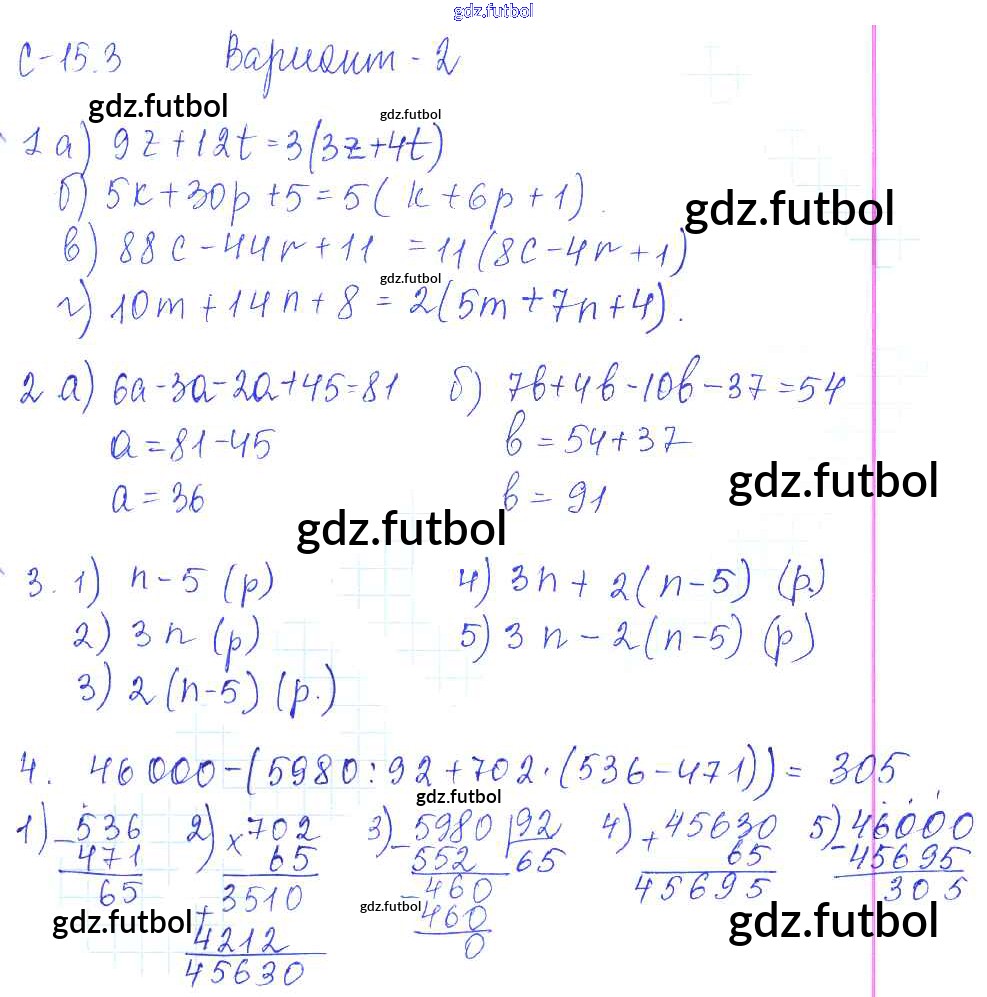 gdz.futbol
С-15.3 Вариант - 2
gdz.futbol gdz.futbol
1 а) 9z + 12t = 3(3z + 4t)
б) 5k + 30p + 5 = 5(k + 6p + 1).
gdz.futbol
в) 88c - 44r + 11 = 11(8c - 4r + 1)
gdz.futbol
г) 10m + 14n + 8 = 2(5m + 7n + 4).
2 а) 6a - 3a - 2a + 45 = 81 б) 7b + 4b - 10b - 37 = 54
a = 81 - 45 b = 54 + 37
gdz.futbol
a = 36 b = 91
gdz.futbol
3. 1) n - 5 (р) 4) 3n + 2(n - 5) (р.)
2) 3n (р) 5) 3n - 2(n - 5) (р)
3) 2(n - 5) (р.)
4. 46 000 - (5980 : 92 + 702 · (536 - 471)) = 305
gdz.futbol
1) - 536 2) × 702 3) - 5980 | 92 4) + 45630 5) - 46000
471 65 552 65 65 45695
65 3510 - 460 45695 305
gdz.futbol + gdz.futbol 460 gdz.futbol
4212 0
45630